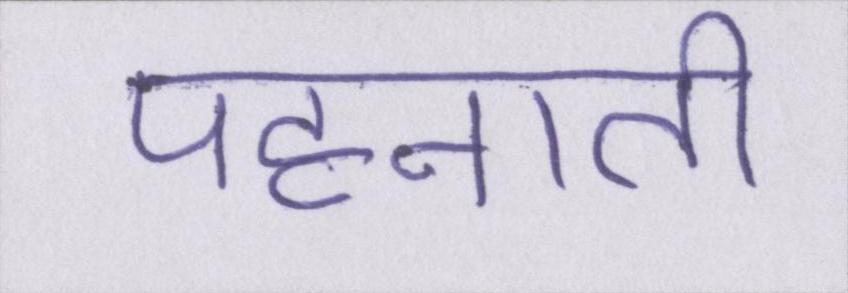 पहनाती